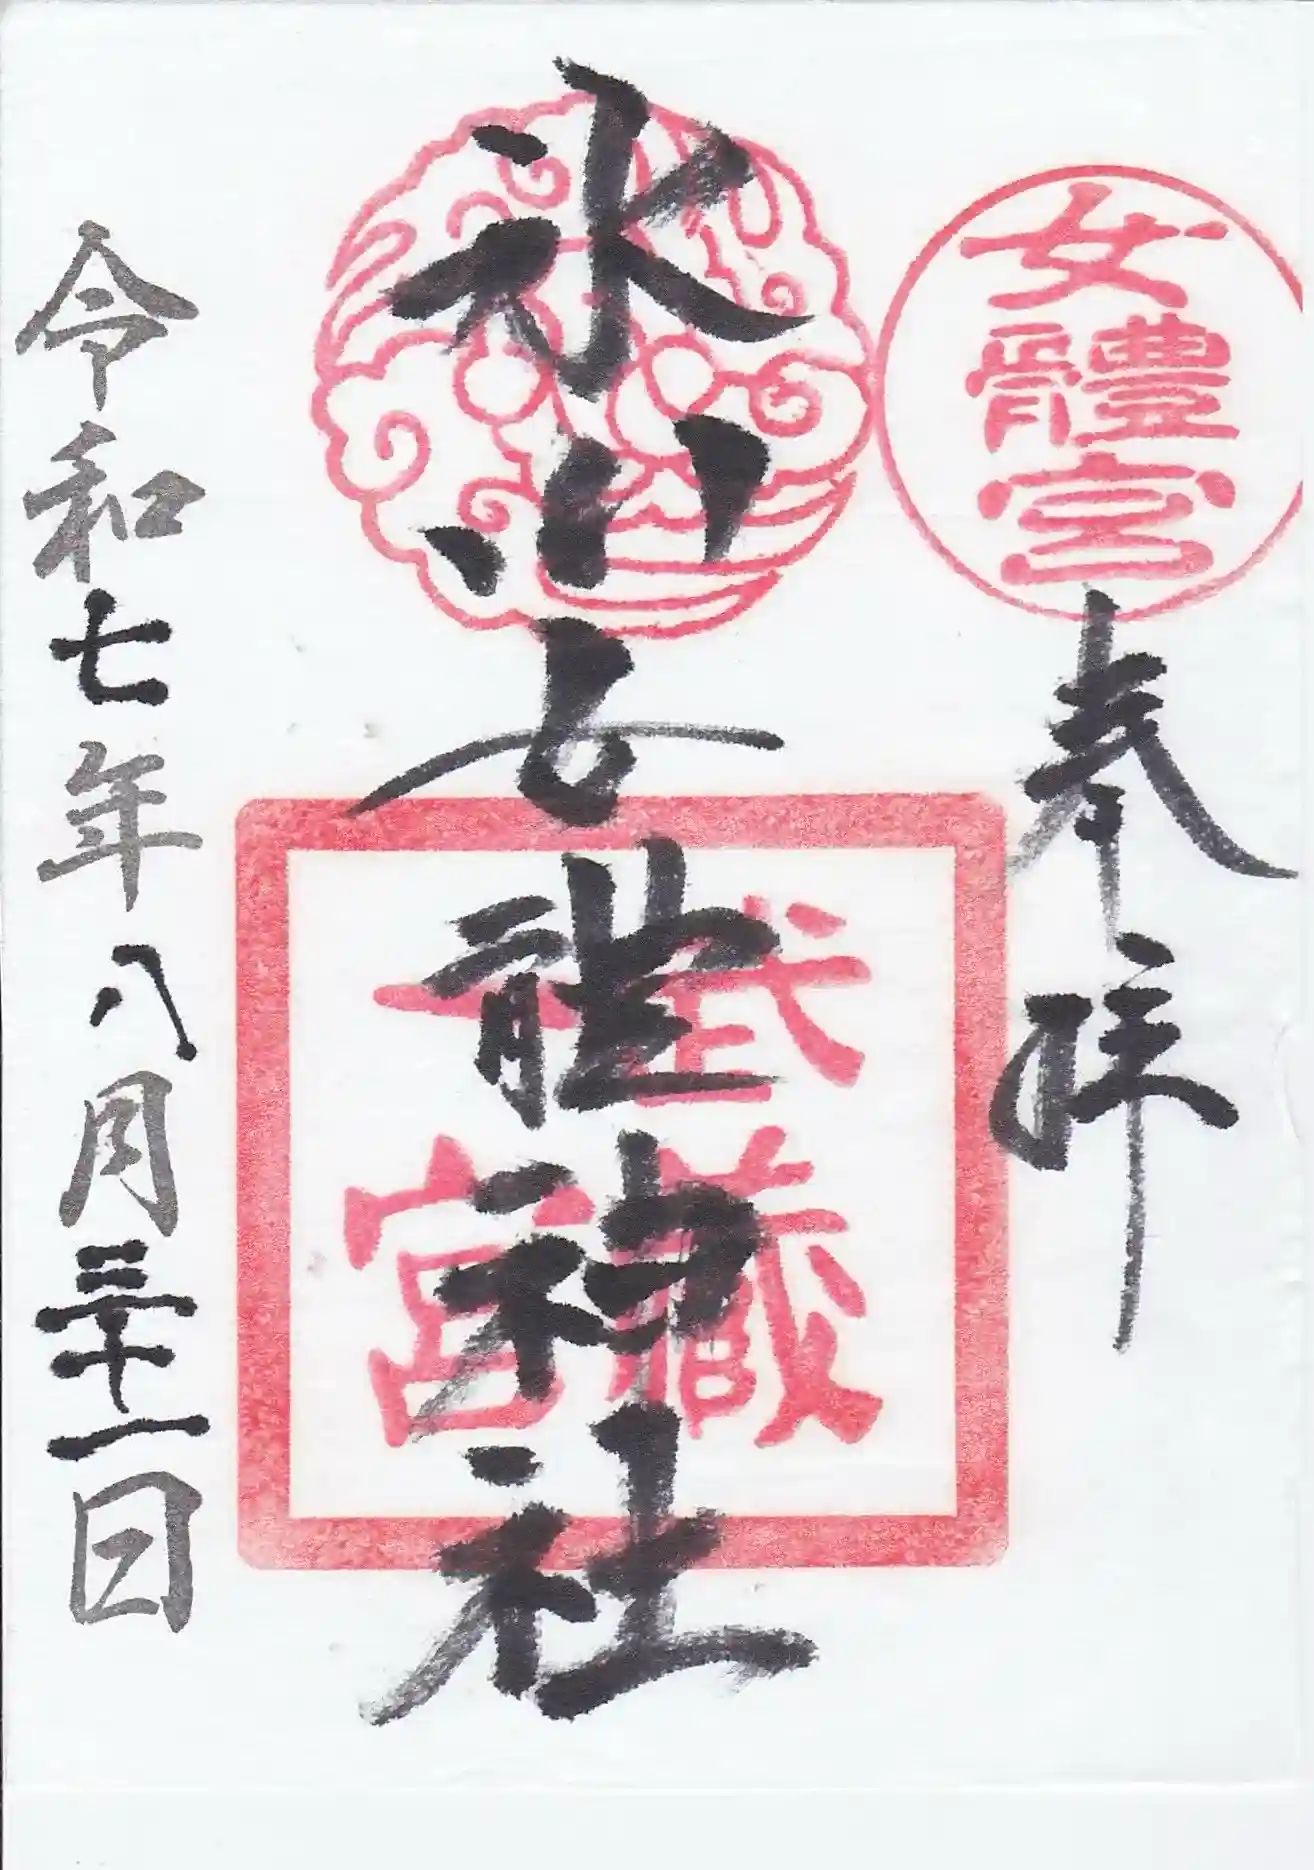 女體宮
奉拝
氷川女體神社
武藏
一宮
令和七年八月三十一日